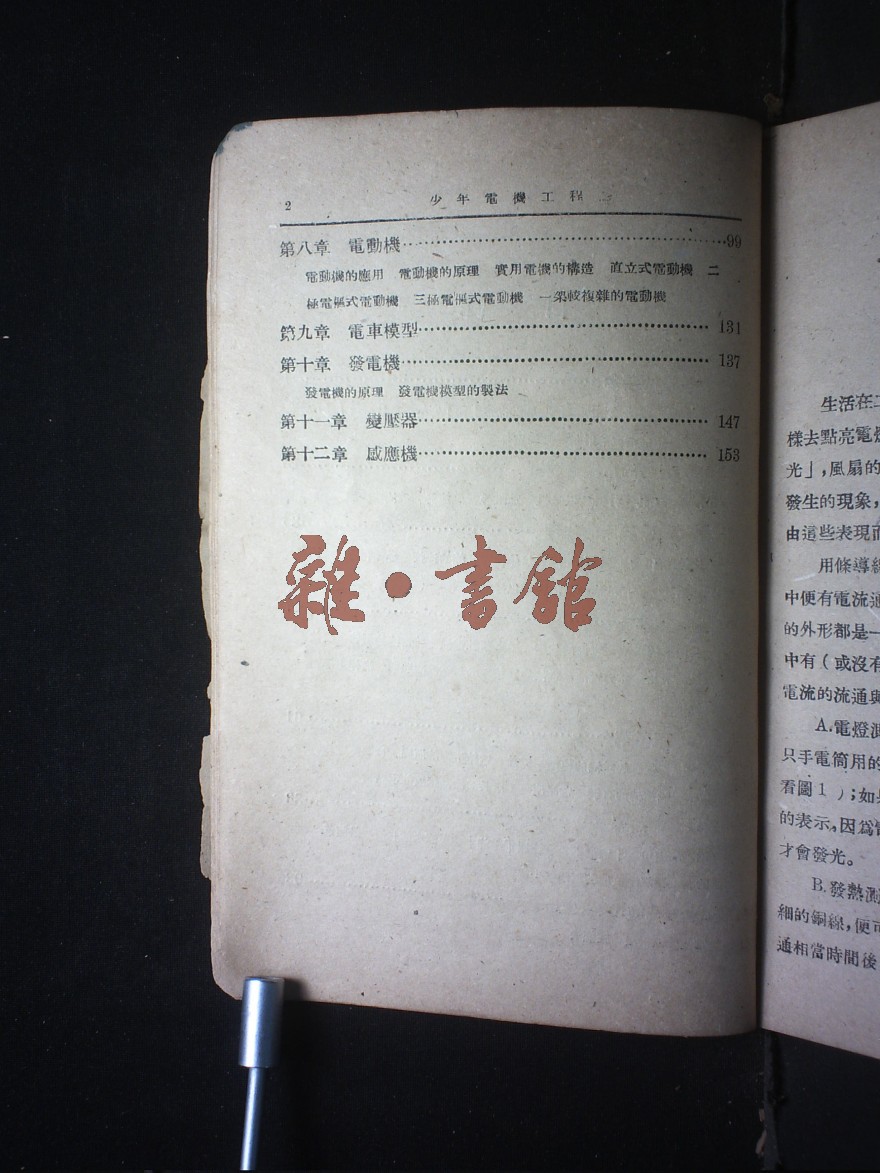 2
少年電機工程
第八章 電動機……………………………99
電動機的應用 電動機的原理 實用電機的構造 直立式電動機 二
極電樞式電動機 三極電樞式電動機 一架較複雜的電動機
第九章 電車模型……………………………131
第十章 發電機……………………………137
發電機的原理 發電機模型的製法
第十一章 變壓器……………………………147
第十二章 感應機……………………………153
雜·書館
生活在二
樣去點亮電燈
光」,風扇的
發生的現象,
由這些表現而
用條導線
中便有電流通
的外形都是一
中有(或沒有
電流的流通與
A.電燈測
只手電筒用的
看圖1);如果
的表示,因爲電
才會發光。
B.發熱測
細的銅線,便可
通相當時間後